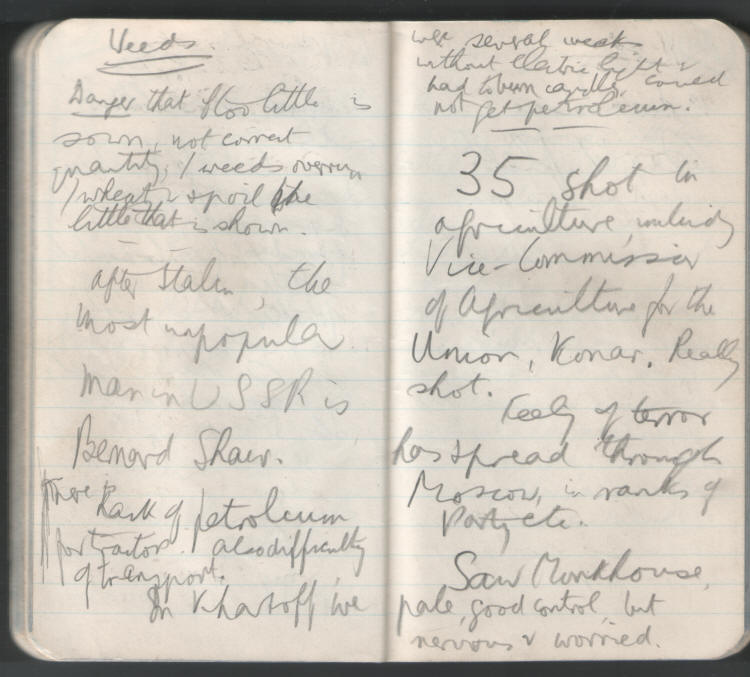 Weeds.
Danger that if too little is
sown, not correct
quantity, / weeds overrun
/ wheat & spoil the
little that is shown.
after Stalin, the
most unpopular
man in USSR is
Bernard Shaw.
There is
Lack of petroleum
for tractors. / also difficulty
of transport.
In Kharkoff we
were several weeks
without electric light &
had to burn candles, could
not get petroleum.
35 shot in
agriculture, including
Vice-Commissar
of Agriculture for the
Union, Konar. Really
shot.
Feeling of terror
has spread through
Moscow, in ranks of
Party etc.
Saw Monkhouse,
pale, good control, but
nervous & worried.